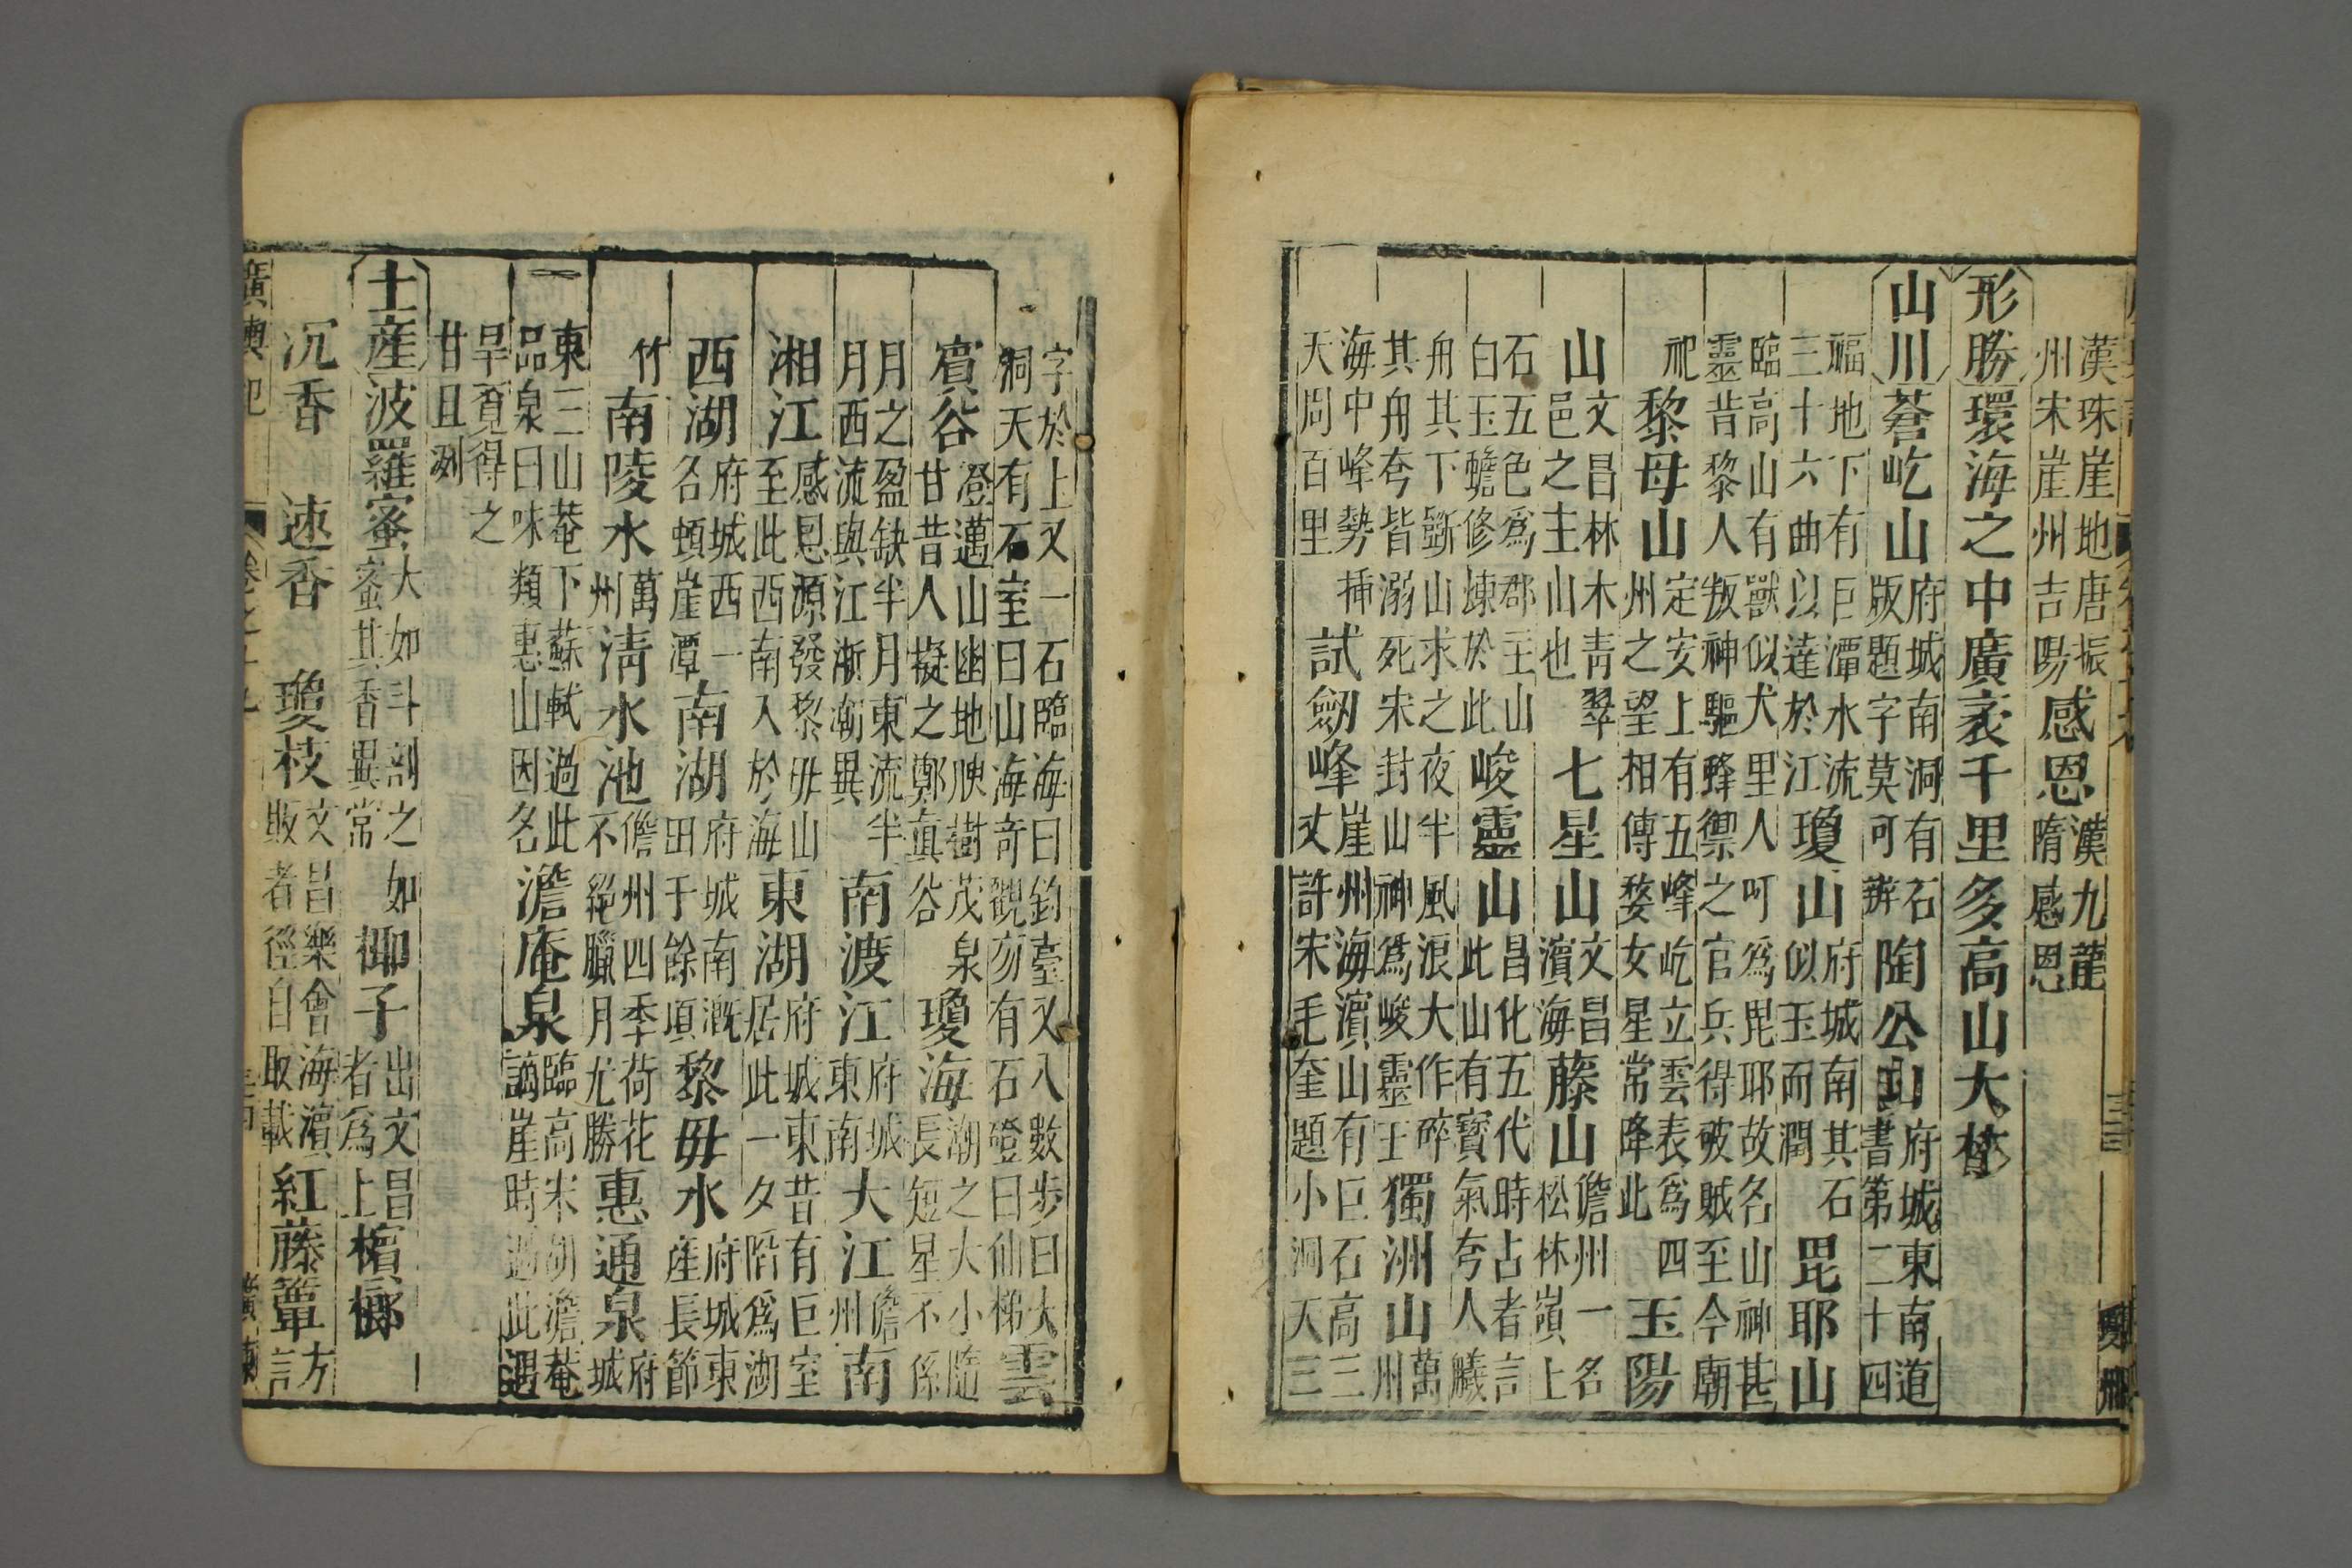 漢珠崖地唐振州宋崖州吉陽感恩漢九龍隋感恩
形勝環海之中廣袤千里多高山大
山川蒼屹山府城南洞有石版題字莫可辨陶公山府城東南道書第二十四
福地下有巨潭水流三十六曲以達於江瓊山府城南其石似玉而潤毘耶山
臨高山有獸似犬里人呵爲毘耶故名山神甚靈昔黎人叛神驅蜂禦之官兵得破賊至今廟
祀黎母山定安上有五峰屹立雲表爲四州之望相傳婺女星常降此玉陽
山文昌林木青翠邑之主山也七星山文昌濱海藤山儋州一名松林嶺上
石五色爲郡王山白玉蟾修煉於此峻靈山昌化五代時占者言此山有寶氣夸人艤
舟其下斲山求之夜半風浪大作碎其舟夸皆溺死宋封山神爲峻靈王獨洲山萬州
海中峰勢挿天周百里試劒峰崖州海濱山有巨石高三丈許宋毛奎題小洞天三
字於上又一石臨海曰釣臺又八數步曰大洞天有石室曰山海奇觀旁有石磴曰仙梯雲
賓谷澄邁山幽地腴樹茂泉甘昔人擬之鄭眞谷瓊海潮之大小隨長短星不係
月之盈缺半月東流半月西流與江浙潮異南渡江府城東南大江儋州南
湘江感恩源發黎毋山至此西南入於海東湖府城東昔有巨室居此一夕陷爲湖
西湖府城西一名頓崖潭南湖府城南溉田千餘頃黎毋水府城東產長節
竹南陵水萬州淸水池儋州四季荷花不絕臘月尤勝惠通泉府城
東三山菴下蘇軾過此品泉曰味類惠山因名澹庵泉臨高宋胡澹菴謫崖時過此遇
旱覓得之甘且洌
土產波羅蜜大如斗剖之如蜜其香異常椰子出文昌者爲上檳榔
沉香 速香 瓊枝文昌樂會海濱販者徑自取載紅藤簟方言
廣輿記 卷之十九 廣東